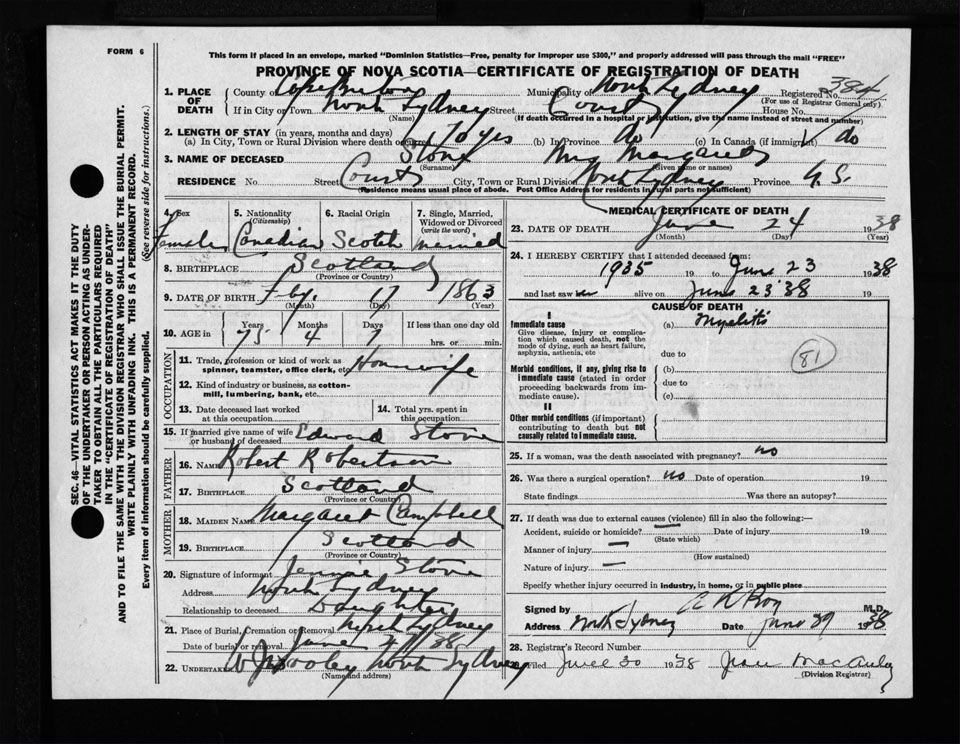 FORM 6
This form if placed in an envelope, marked "Dominion Statistics—Free, penalty for improper use $300," and properly addressed will pass through the mail "FREE"
PROVINCE OF NOVA SCOTIA—CERTIFICATE OF REGISTRATION OF DEATH
SEC. 46—VITAL STATISTICS ACT MAKES IT THE DUTY
OF THE UNDERTAKER OR PERSON ACTING AS UNDER-
TAKER TO OBTAIN ALL THE PARTICULARS REQUIRED
IN THE "CERTIFICATE OF REGISTRATION OF DEATH"
AND TO FILE THE SAME WITH THE DIVISION REGISTRAR WHO SHALL ISSUE THE BURIAL PERMIT.
WRITE PLAINLY WITH UNFADING INK. THIS IS A PERMANENT RECORD.
Every item of information should be carefully supplied. (See reverse side for instructions.)
1. PLACE OF DEATH County of Cape Breton Municipality of North Sydney Registered No. 384
(For use of Registrar General only)
If in City or Town North Sydney Street Court House No.
(Name) (If death occurred in a hospital or institution, give the name instead of street and number)
2. LENGTH OF STAY (in years, months and days)
(a) In City, Town or Rural Division where death occurred 70 yrs (b) In Province do (c) In Canada (if immigrant) do
3. NAME OF DECEASED Stone Mrs Margaret
(Surname) (Given name or names)
RESIDENCE No. Street Court City, Town or Rural Division North Sydney Province N.S.
(Residence means usual place of abode. Post Office Address for residents in rural parts not sufficient)
4. Sex Female
5. Nationality (Citizenship) Canadian
6. Racial Origin Scotch
7. Single, Married, Widowed or Divorced (write the word) Married
8. BIRTHPLACE Scotland
(Province or Country)
9. DATE OF BIRTH 17 1863
(Month) (Day) (Year)
10. AGE in Years 75 Months 4 Days 7 If less than one day old
hrs. or min.
OCCUPATION
11. Trade, profession or kind of work as spinner, teamster, office clerk, etc. Housewife
12. Kind of industry or business, as cotton-mill, lumbering, bank, etc.
13. Date deceased last worked at this occupation
14. Total yrs. spent in this occupation
15. If married give name of wife or husband of deceased Edward Stone
FATHER
16. NAME Robert Robertson
17. BIRTHPLACE Scotland
(Province or Country)
MOTHER
18. MAIDEN NAME Margaret Campbell
19. BIRTHPLACE Scotland
(Province or Country)
20. Signature of informant Jennie Stone
Address North Sydney
Relationship to deceased Daughter
21. Place of Burial, Cremation or Removal North Sydney
Date of burial or removal June
22. UNDERTAKER W J Dooley North Sydney
(Name and address)
MEDICAL CERTIFICATE OF DEATH
23. DATE OF DEATH June 24 1938
(Month) (Day) (Year)
24. I HEREBY CERTIFY that I attended deceased from:
1935 19 to June 23 1938
and last saw alive on June 23 '38 19
CAUSE OF DEATH
I
Immediate cause
Give disease, injury or complication which caused death, not the mode of dying, such as heart failure, asphyxia, asthenia, etc
(a) Myelitis
due to
81
Morbid conditions, if any, giving rise to immediate cause (stated in order proceeding backwards from immediate cause).
(b)
due to
(c)
II
Other morbid conditions (if important) contributing to death but not causally related to immediate cause.
25. If a woman, was the death associated with pregnancy? no
26. Was there a surgical operation? no Date of operation 19
State findings Was there an autopsy?
27. If death was due to external causes (violence) fill in also the following:—
Accident, suicide or homicide? — Date of injury 19
(State which)
Manner of injury —
(How sustained)
Nature of injury —
Specify whether injury occurred in industry, in home, or in public place
Signed by M.D.
Address North Sydney Date June 1938
28. Registrar's Record Number
Filed June 30 1938 Jean MacAulay
(Division Registrar)